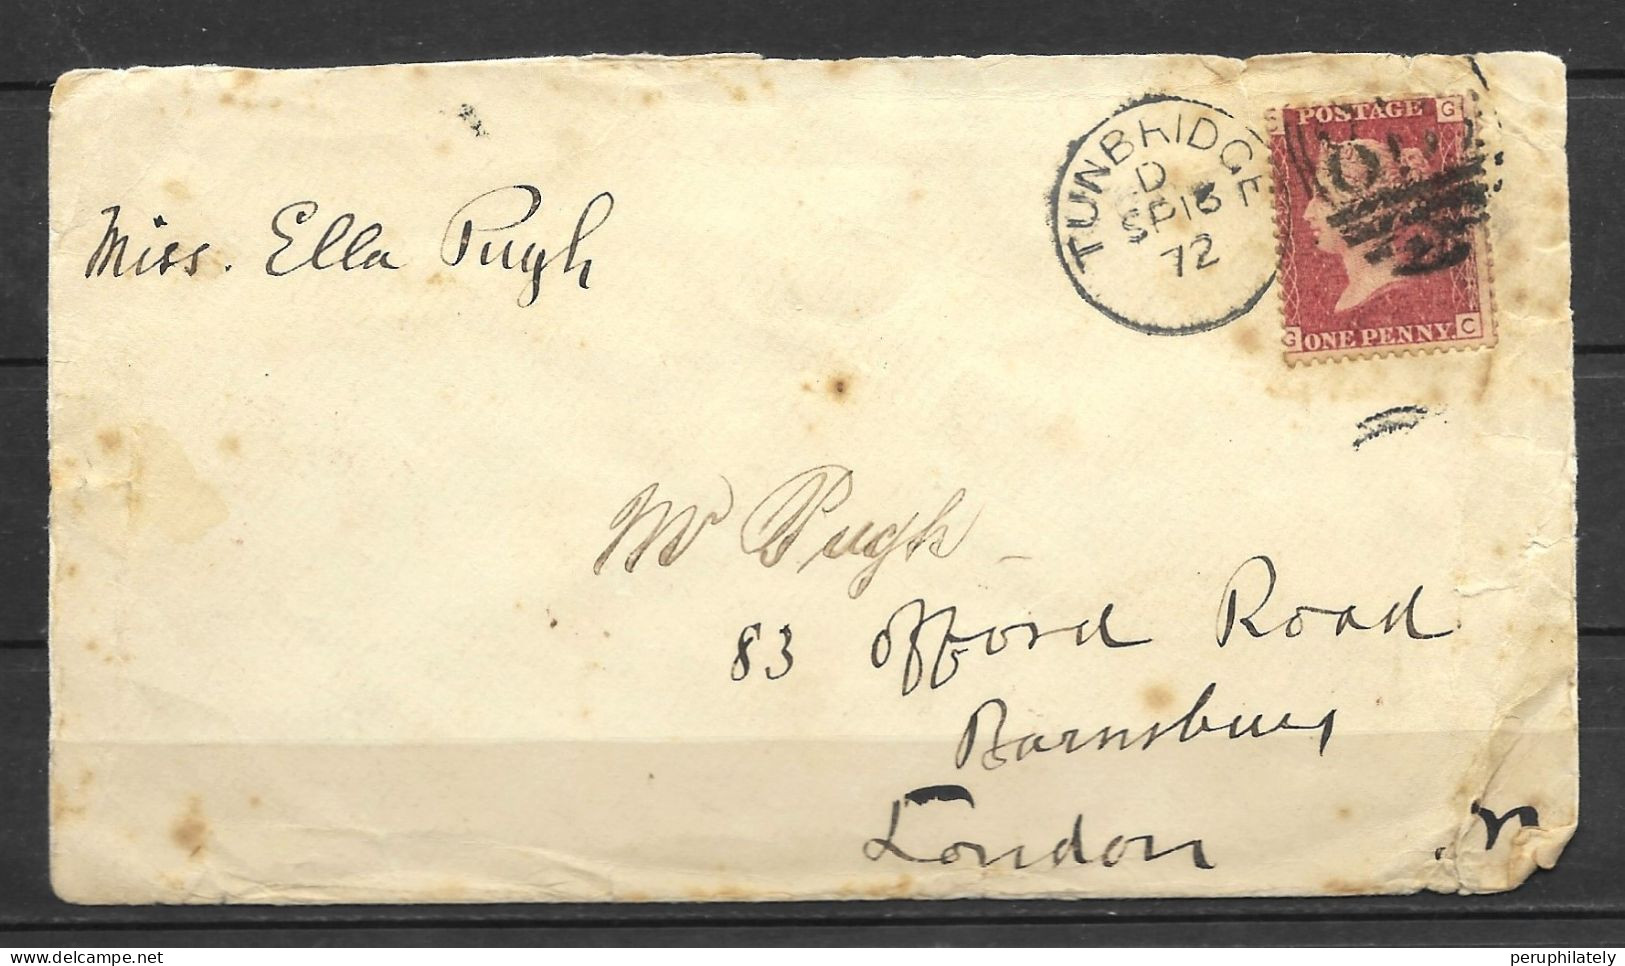 TUNBRIDGE
D
SP 13
72
POSTAGE G
ONE PENNY.
G C
Miss. Ella Pugh
Mr Pugh
83 Offord Road
Barnsbury
London
N
delcampe.net
peruphilately